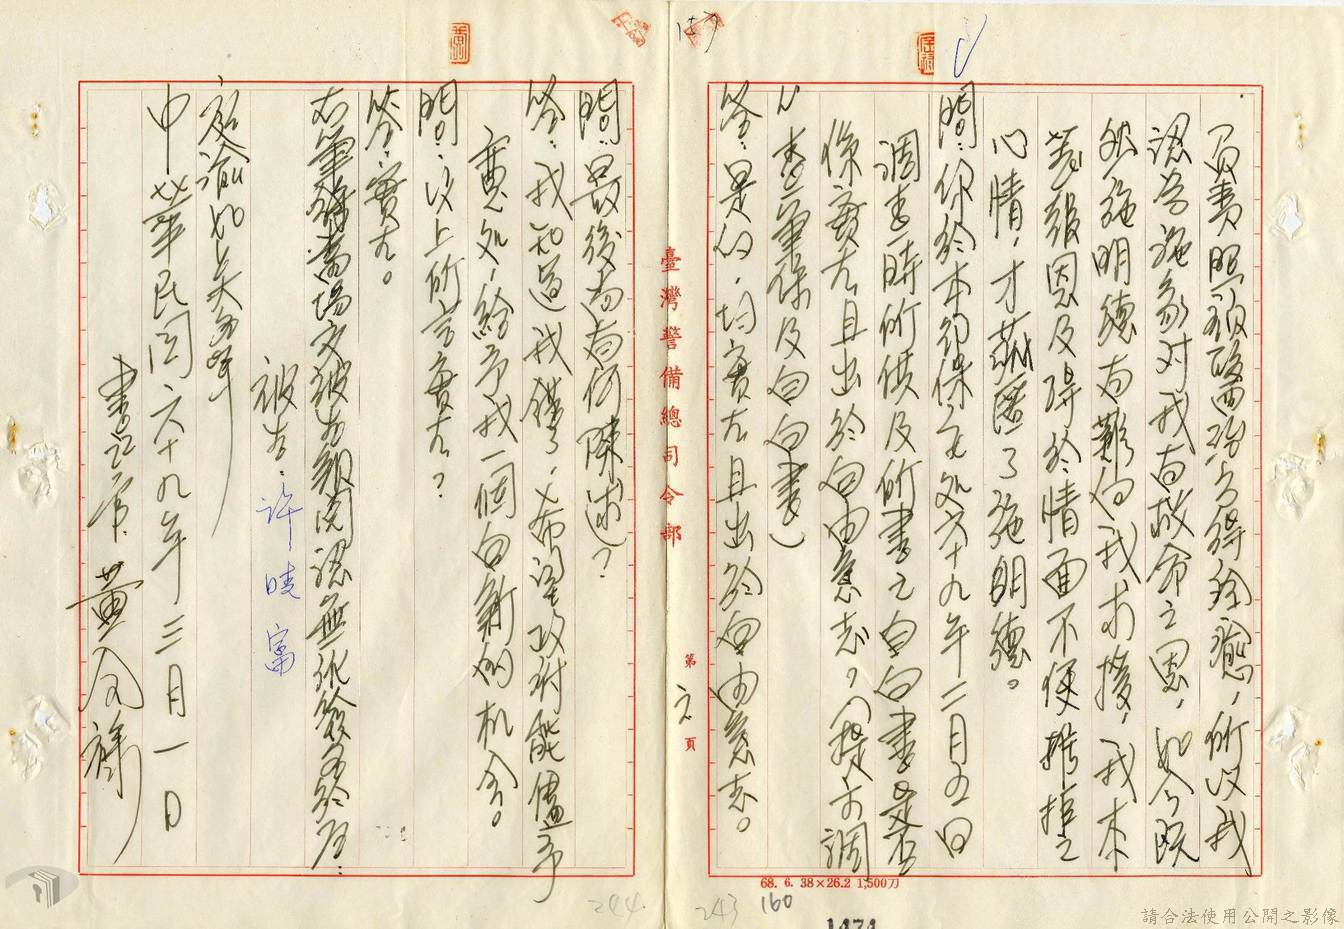 負責照顧醫治方得痊癒，所以我
認為施家對我有救命之恩，如今既
然施明德有難向我求援，我本
著報恩及碍於情面不便推拒之
心情，才藏匿了施明德。
問：你於本部保安处六十九年二月五日
調查時所供及所書之自白書是否
係實在且出於自由意志。（提示調
查筆錄及自白書）
答：是的，均實在且出於自由意志。
問：最後尚有何陳述？
答：我知道我錯了，希望政府能儘予
寬处，給予我一個自新的机会。
問：以上所言實在？
答：實在。
右筆錄當場交被告親閱認無訛簽名於后：
被告：許晴富
中華民國六十九年三月一日
書記官 黃金祥
臺灣警備總司令部
第 頁
68. 6. 38×26.2 1,500刀
157
244
243
160
1474
請合法使用公開之影像